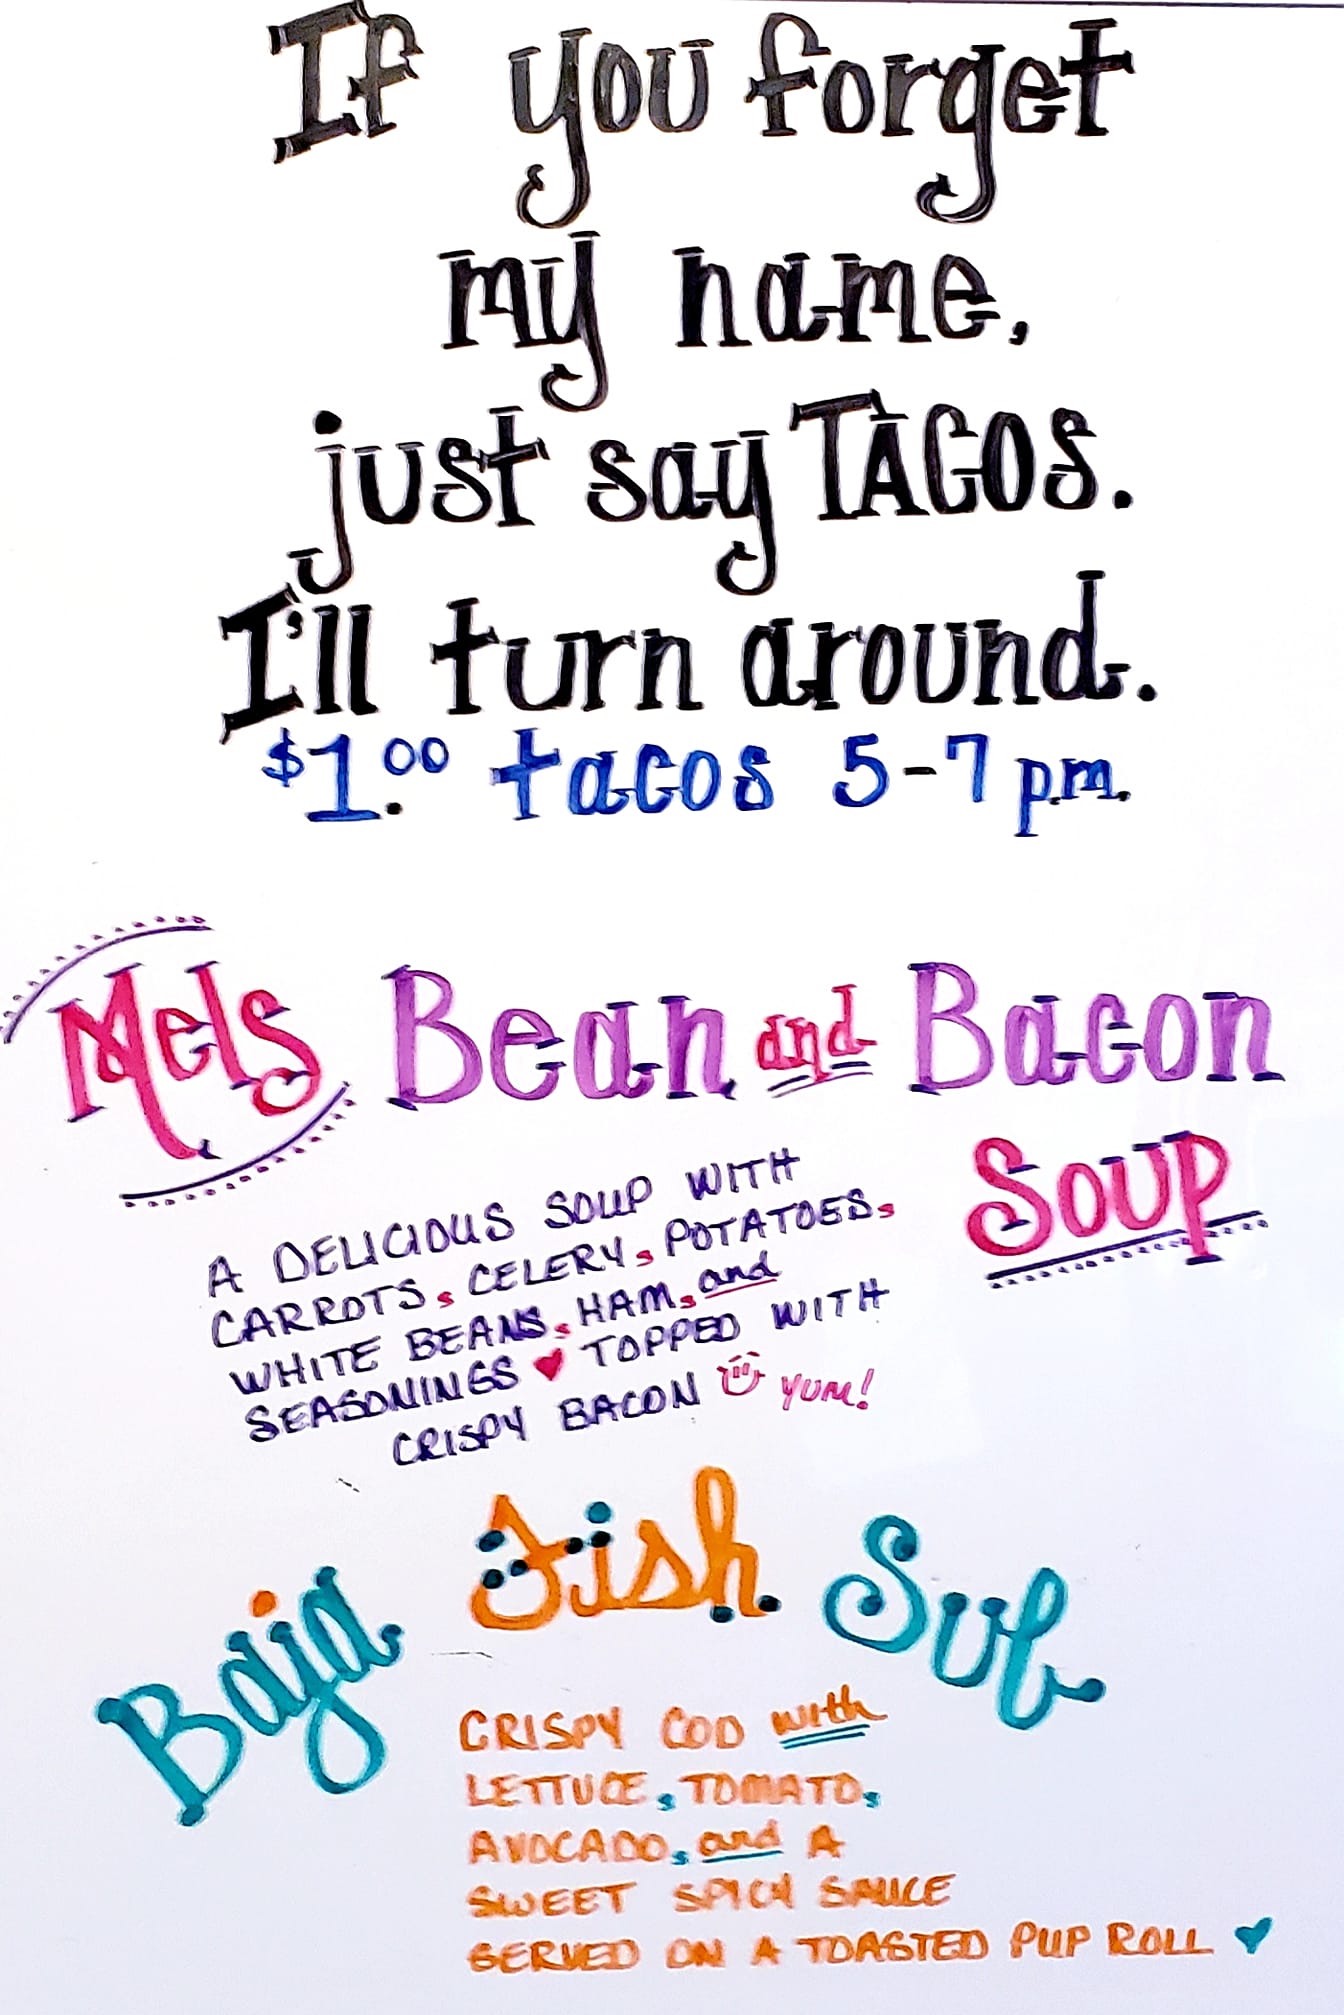 If you forget
my name,
just say TACOS.
I'll turn around.
$1.00 tacos 5-7 p.m.
Mels Bean and Bacon
Soup
A DELICIOUS SOUP WITH
CARROTS, CELERY, POTATOES,
WHITE BEANS, HAM, and
SEASONINGS ♥ TOPPED WITH
CRISPY BACON YUM!
Baja Fish Sub
CRISPY COD with
LETTUCE, TOMATO,
AVOCADO, and A
SWEET SPICY SAUCE
SERVED ON A TOASTED PUP ROLL ♥